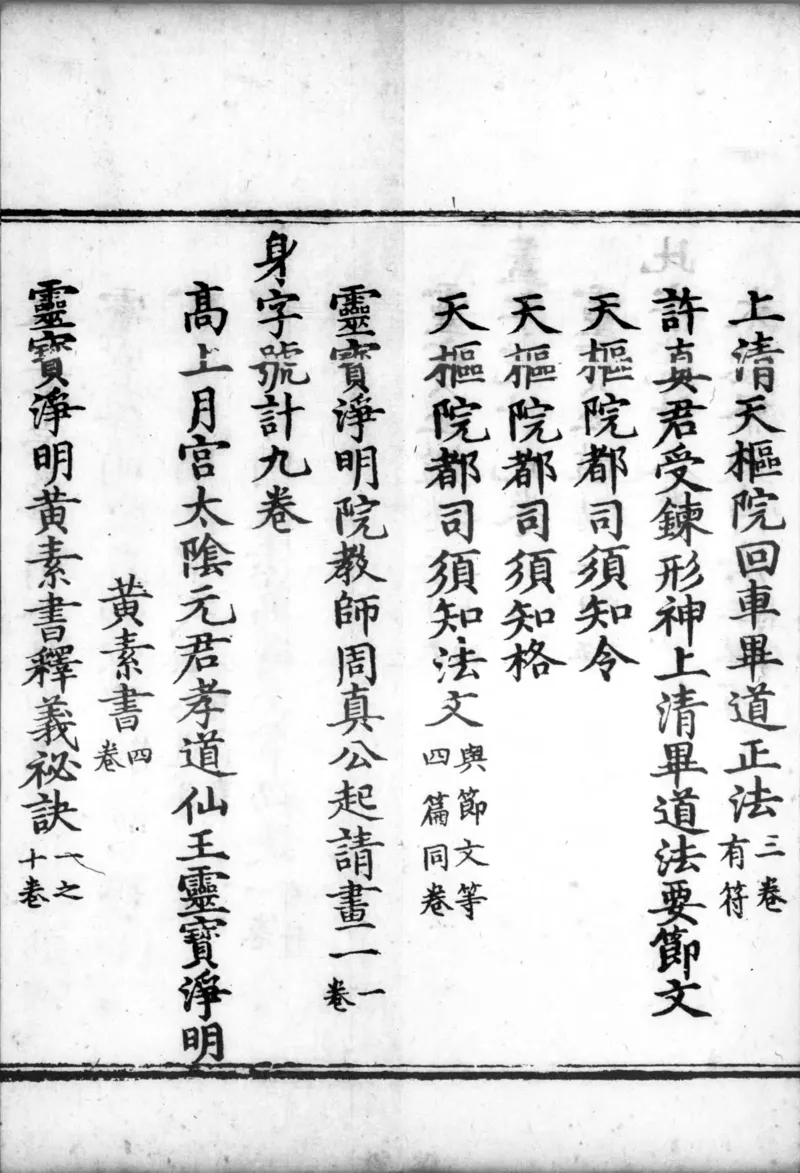 上清天樞院回車畢道正法三卷有符
許真君受鍊形神上清畢道法要節文
天樞院都司須知令
天樞院都司須知格
天樞院都司須知法文與節文等四篇同卷
靈寳淨明院教師周真公起請畫一一卷
身字號計九卷
高上月宮太隂元君孝道仙王靈寳淨明
黃素書四卷
靈寳淨明黃素書釋義祕訣一之十卷